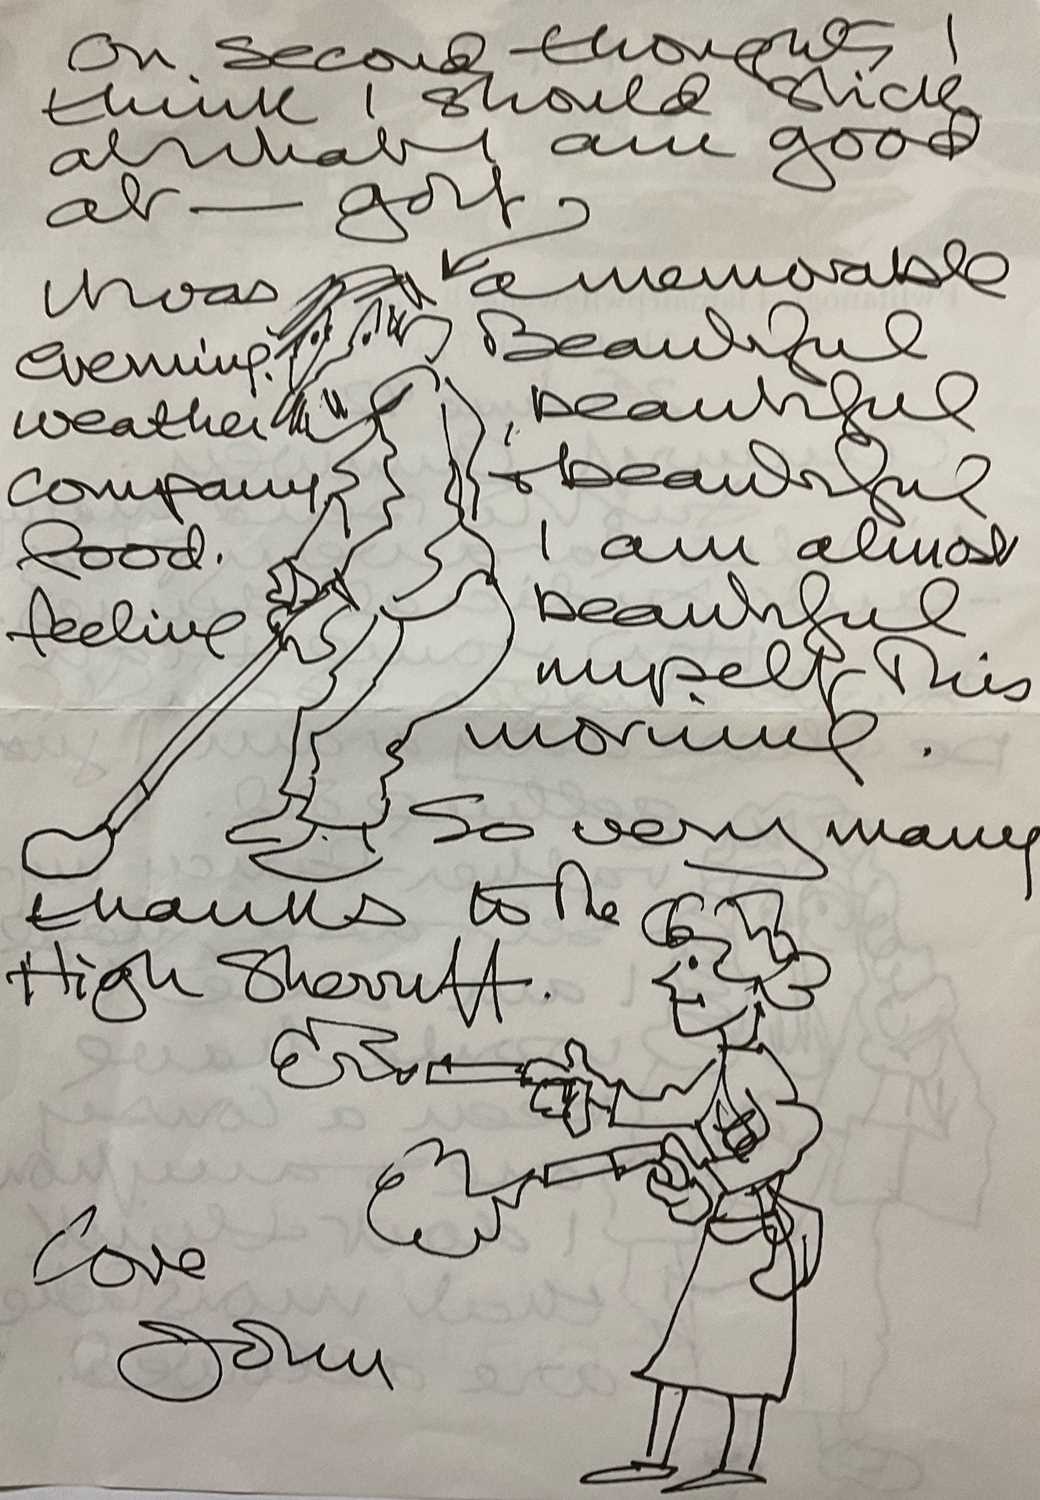 On second thoughts I
think I should stick
at what I am good
at — golf
It was a memorable
evening. Beautiful
weather beautiful
company beautiful
food. I am almost
feeling beautiful
myself This
morning.
So very many
thanks to The
High Sherriff.
Love
John